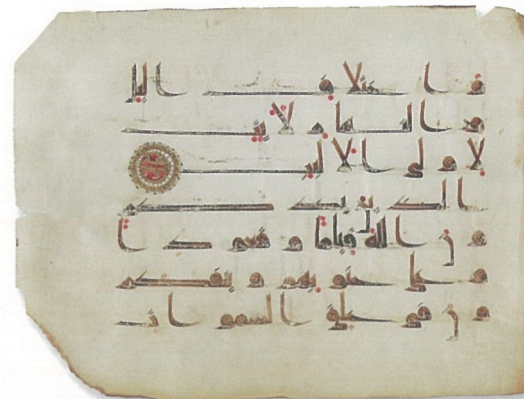 واختلاف اليل
والنهار لايت
لاولى الالبب
الذين يذكر
ون الله قياما وقعودا
وعلى جنوبهم ويتفكر
ون فى خلق السموات